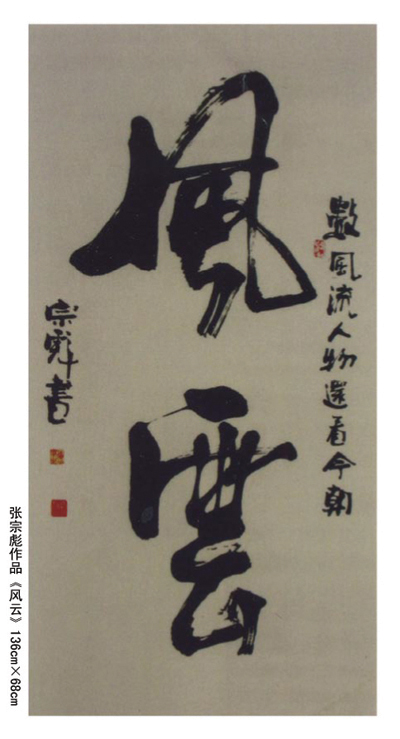 數風流人物還看今朝
風雲
宗彪書
张宗彪作品《风云》136cm×68cm